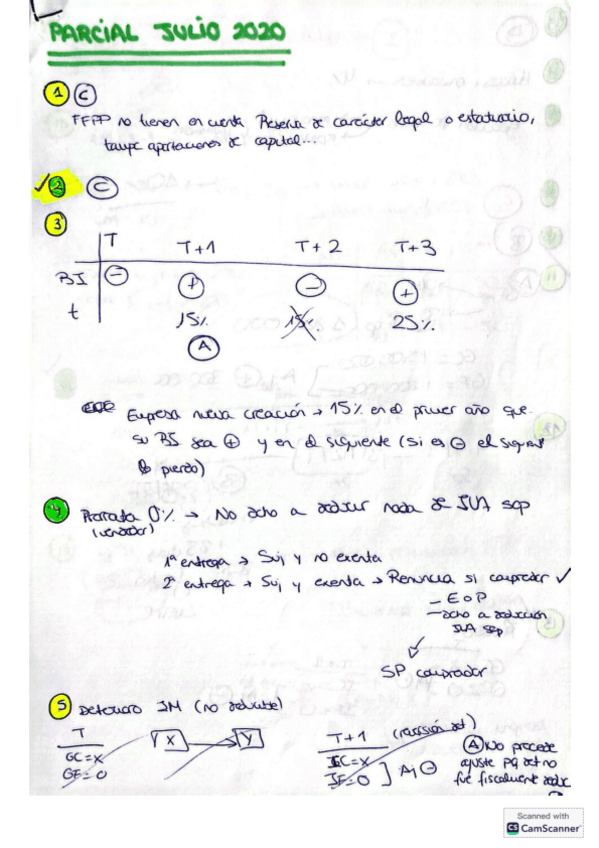 PARCIAL JULIO 2020
1 C
FFPP no tienen en cuenta Reserva de carácter legal o estatutario,
tampc aportaciones de capital...
✓ 2 C
3
T T+1 T+2 T+3
BI - + - +
t 15% 15% 25%
A
Empresa nueva creación → 15% en el primer año que
su BI sea + y en el siguiente (si es - el siguient
lo pierdo)
4 Prorrata 0% → No dcho a deducir nada de IVA sop
(vendedor)
1ª entrega → Suj y no exenta
2ª entrega → Suj y exenta → Renuncia si comprador ✓
- E o P
- dcho a deducción
IVA sop
SP comprador
5 Deterioro IM (no deducible)
T
GC=X
GF=0
X → Y
T+1 (reversión det)
IC=X
IF=0 ] Aj -
A No procede
ajuste pq det no
fue fiscalmente deduc
Scanned with
CS CamScanner